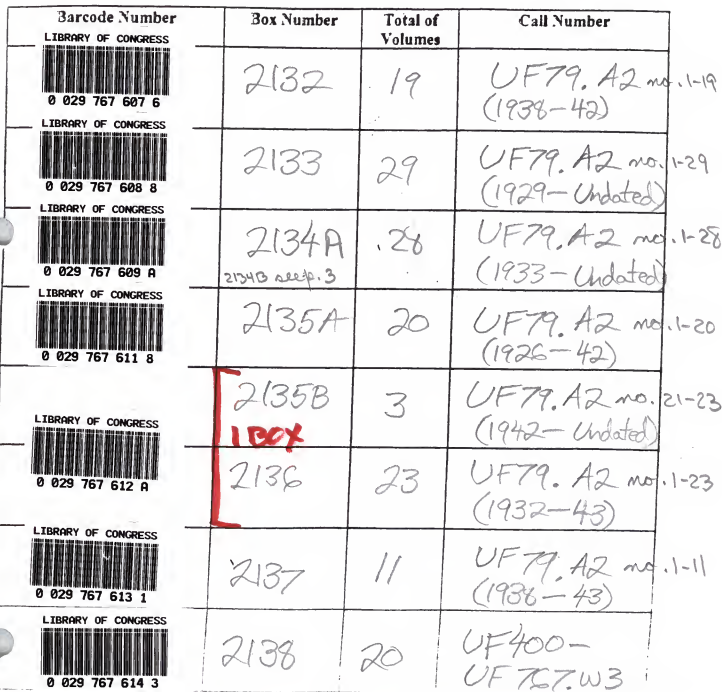 Barcode Number Box Number Total of Volumes Call Number
LIBRARY OF CONGRESS
0 029 767 607 6
2132 19 UF79. A2 no. 1-19
(1938-42)
LIBRARY OF CONGRESS
0 029 767 608 8
2133 29 UF79. A2 no. 1-29
(1929-Undated)
LIBRARY OF CONGRESS
0 029 767 609 A
2134A 28 UF79. A2 no. 1-28
2134B see p. 3 (1933-Undated)
LIBRARY OF CONGRESS
0 029 767 611 8
2135A 20 UF79. A2 no. 1-20
(1926-42)
2135B 3 UF79. A2 no. 21-23
1 BOX (1942-Undated)
LIBRARY OF CONGRESS
0 029 767 612 A
2136 23 UF79. A2 no. 1-23
(1932-43)
LIBRARY OF CONGRESS
0 029 767 613 1
2137 11 UF79. A2 no. 1-11
(1938-43)
LIBRARY OF CONGRESS
0 029 767 614 3
2138 20 UF400-
UF767.W3